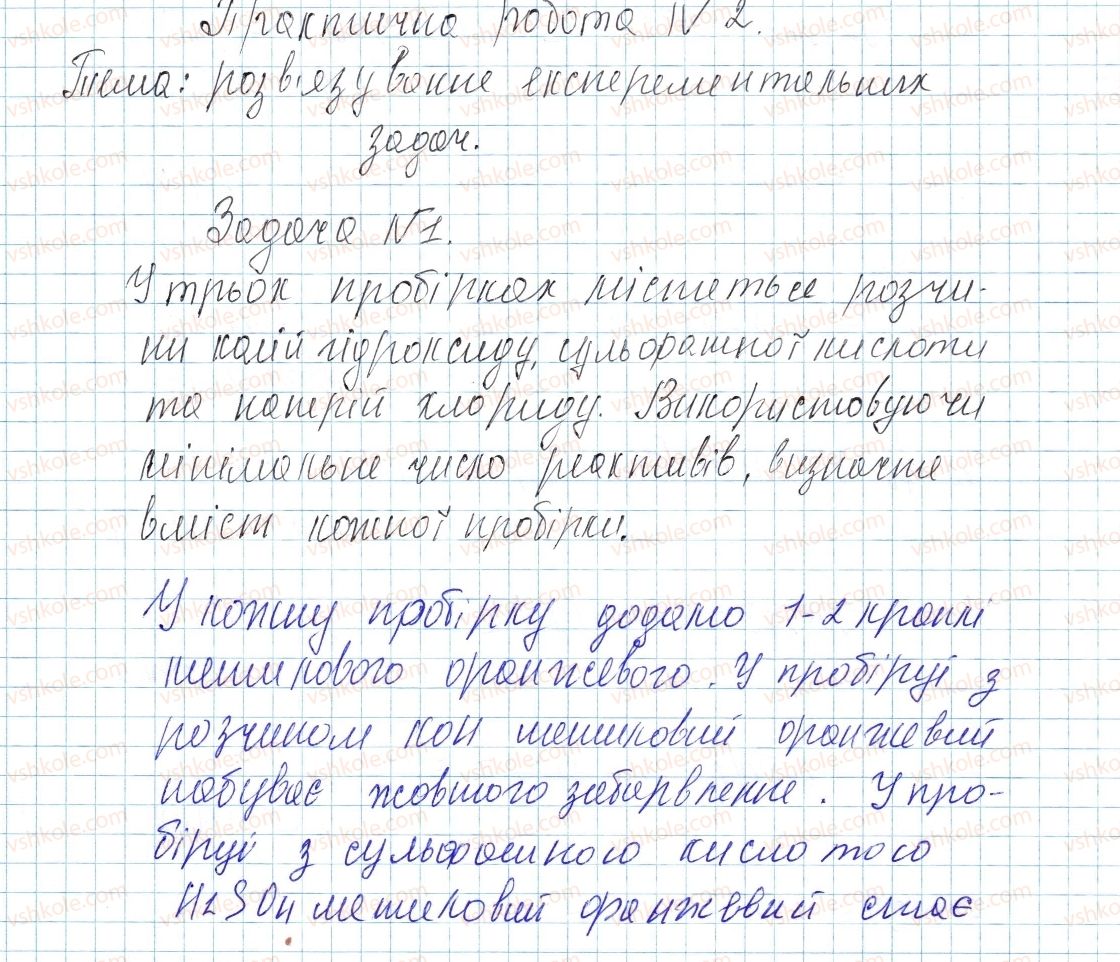 Практична робота №2.
Тема: розв'язування експерементальних
задач.
Задача №1.
У трьох пробірках містяться розчи-
ни калій гідроксиду, сульфатної кислоти
та натрій хлориду. Використовуючи
мінімальне число реактивів, визначте
вміст кожної пробірки.
У кожну пробірку додамо 1-2 краплі
метилового оранжевого. У пробірці з
розчином KOH метиловий оранжевий
набуває жовтого забарвлення. У про-
бірці з сульфатною кислотою
H2SO4 метиловий оранжевий стає